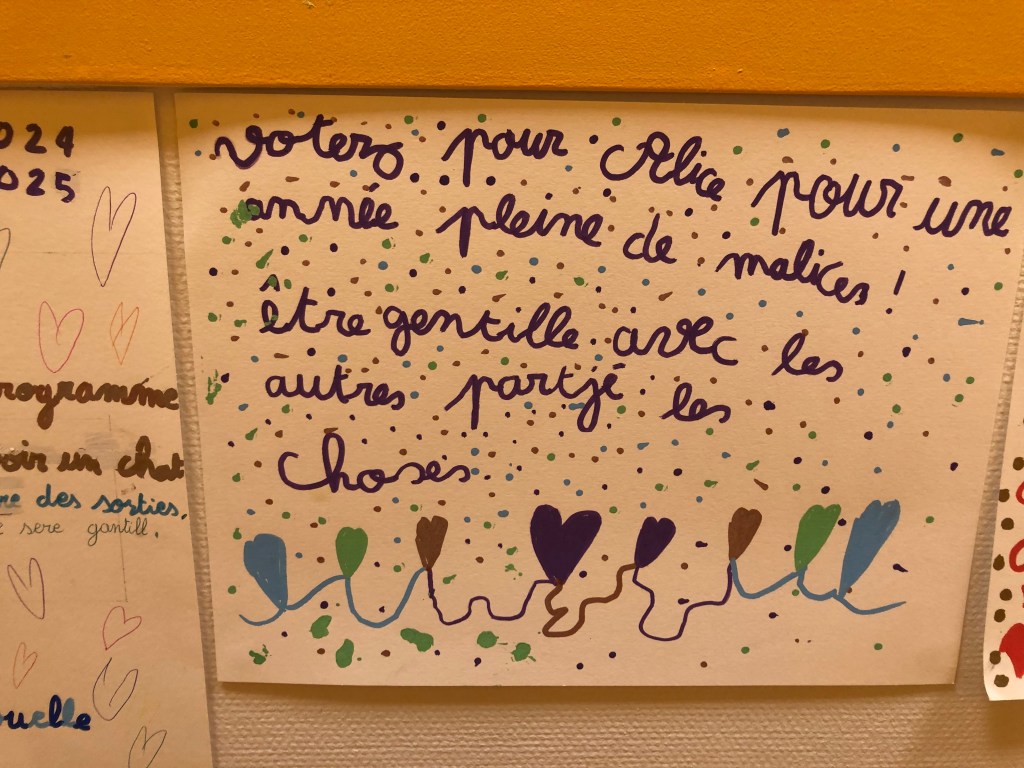 2024
2025
programme
voir un chat
des sorties.
sere gantill.
ouelle
votez pour Alice pour une
année pleine de malices !
être gentille avec les
autres partjé les
choses.